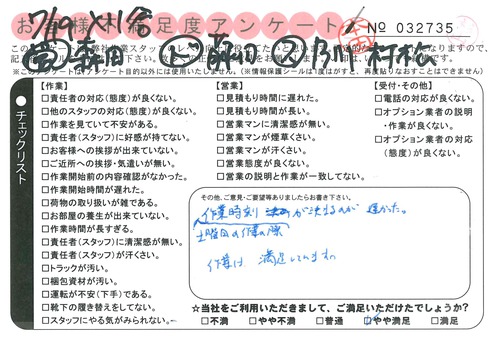 7/19
お客様満足度アンケート
№ 032735
チェックリスト
【作業】
□責任者の対応(態度)が良くない。
□他のスタッフの対応(態度)が良くない。
□作業を見ていて不安がある。
□責任者(スタッフ)に好感が持てない。
□お客様への挨拶が出来ていない。
□ご近所への挨拶・気遣いが無い。
□作業開始前の内容確認がなかった。
□作業開始時間が遅れた。
□荷物の取り扱いが雑である。
□お部屋の養生が出来ていない。
□作業時間が長すぎる。
□責任者(スタッフ)に清潔感が無い。
□責任者(スタッフ)が汗くさい。
□トラックが汚い。
□梱包資材が汚い。
□運転が不安(下手)である。
□靴下の履き替えをしてない。
□スタッフにやる気がみられない。
【営業】
□見積もり時間に遅れた。
□見積もり時間が長い。
□営業マンに清潔感が無い。
□営業マンが煙草くさい。
□営業マンが汗くさい。
□営業態度が良くない。
□営業の説明と作業が一致してない。
【受付・その他】
□電話の対応が良くない。
□オプション業者の説明
・作業が良くない。
□オプション業者の対応
(態度)が良くない。
その他、ご意見・ご要望等ありましたらお書き下さい。
作業時刻が決するのが遅かった。
土曜日の作業の際
作業は満足しています
☆当社をご利用いただきまして、ご満足いただけたでしょうか?
□不満 □やや不満 □普通 □やや満足 □満足